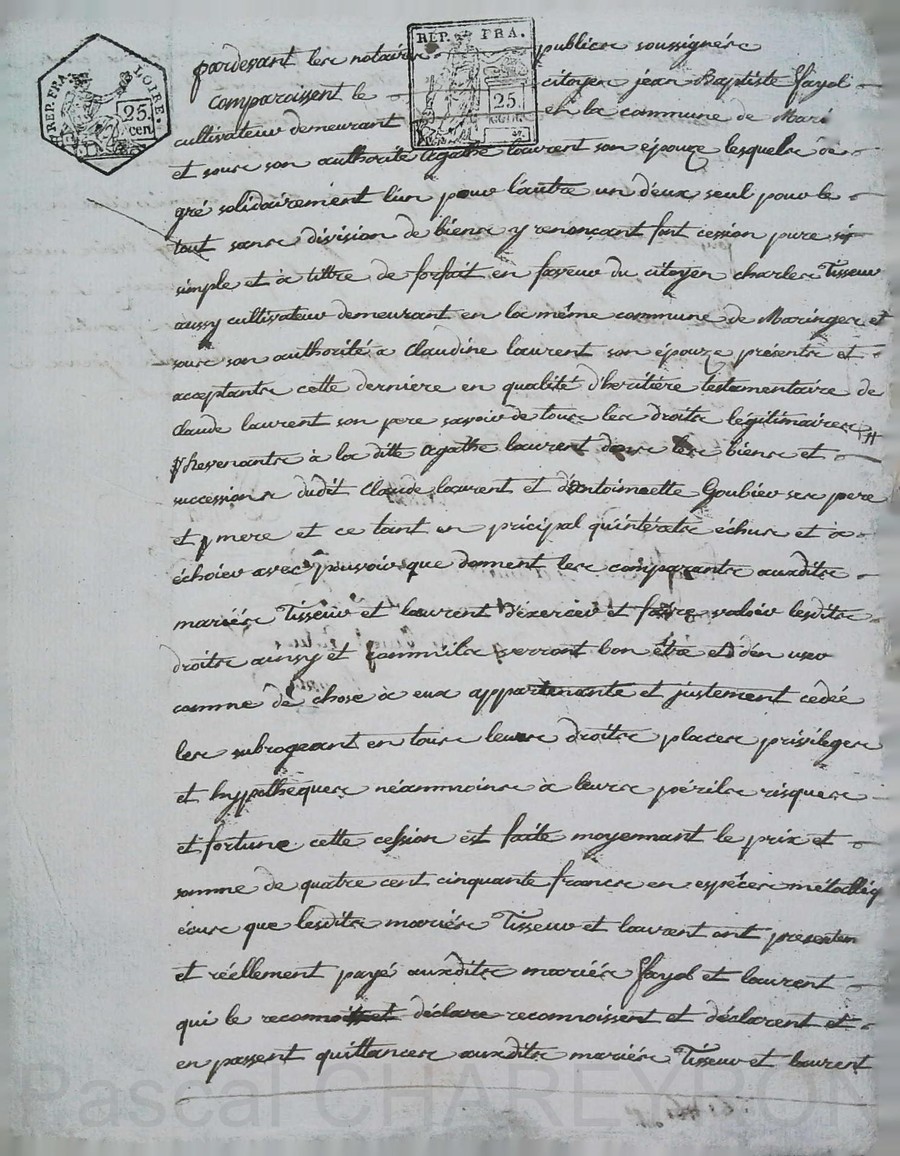 REP. FRA. LOIRE.
25. cen
REP. FRA.
25.
pardevant les notaires publics soussignés
comparaissent le citoyen jean Baptiste ffayol
cultivateur demeurant en la commune de Mari
et sous son authorité agathe laurent son épouze lesquels de
gré solidairement l'un pour l'autre un d'eux seul pour le
tout sans division de biens y renonçant font cession pure
simple et à tittre de forfait en faveur du citoyen charles Tisseur
aussy cultivateur demeurant en la même commune de Maringes et
sous son authorité a Claudine laurent son épouze présents et
acceptants cette derniere en qualité d'heritière testamentaire de
claude laurent son pere savoir de tous les droits légitimaires
Revenants à la ditte agathe laurent dans les biens et
successions dudit Claude laurent et d'Antoinette Goubier ses pere
et mere et ce tant en pricipal qu'intérats échus et a
échoier avec pouvoir que donnent les comparants auxdits
mariés Tisseur et laurent d'éxercer et faire valoir lesdits
droits ainsy et comm'ils verront bon être et d'en user
comme de chose à eux appartenante et justement cedée
les subrogeant en tous leurs droits places privileges
et hypotheques néammoins à leurs périls risques
et fortune cette cession est faite moyennant le prix et
somme de quatre cent cinquante francs en espéces métalliq
écus que lesdits mariés Tisseur et laurent ont presentem
et réellement payé auxdits mariés ffayol et laurent
qui le déclare reconnoissent et déclarent et
en passent quittances auxdits mariés Tisseur et laurent
Pascal CHAREYRON